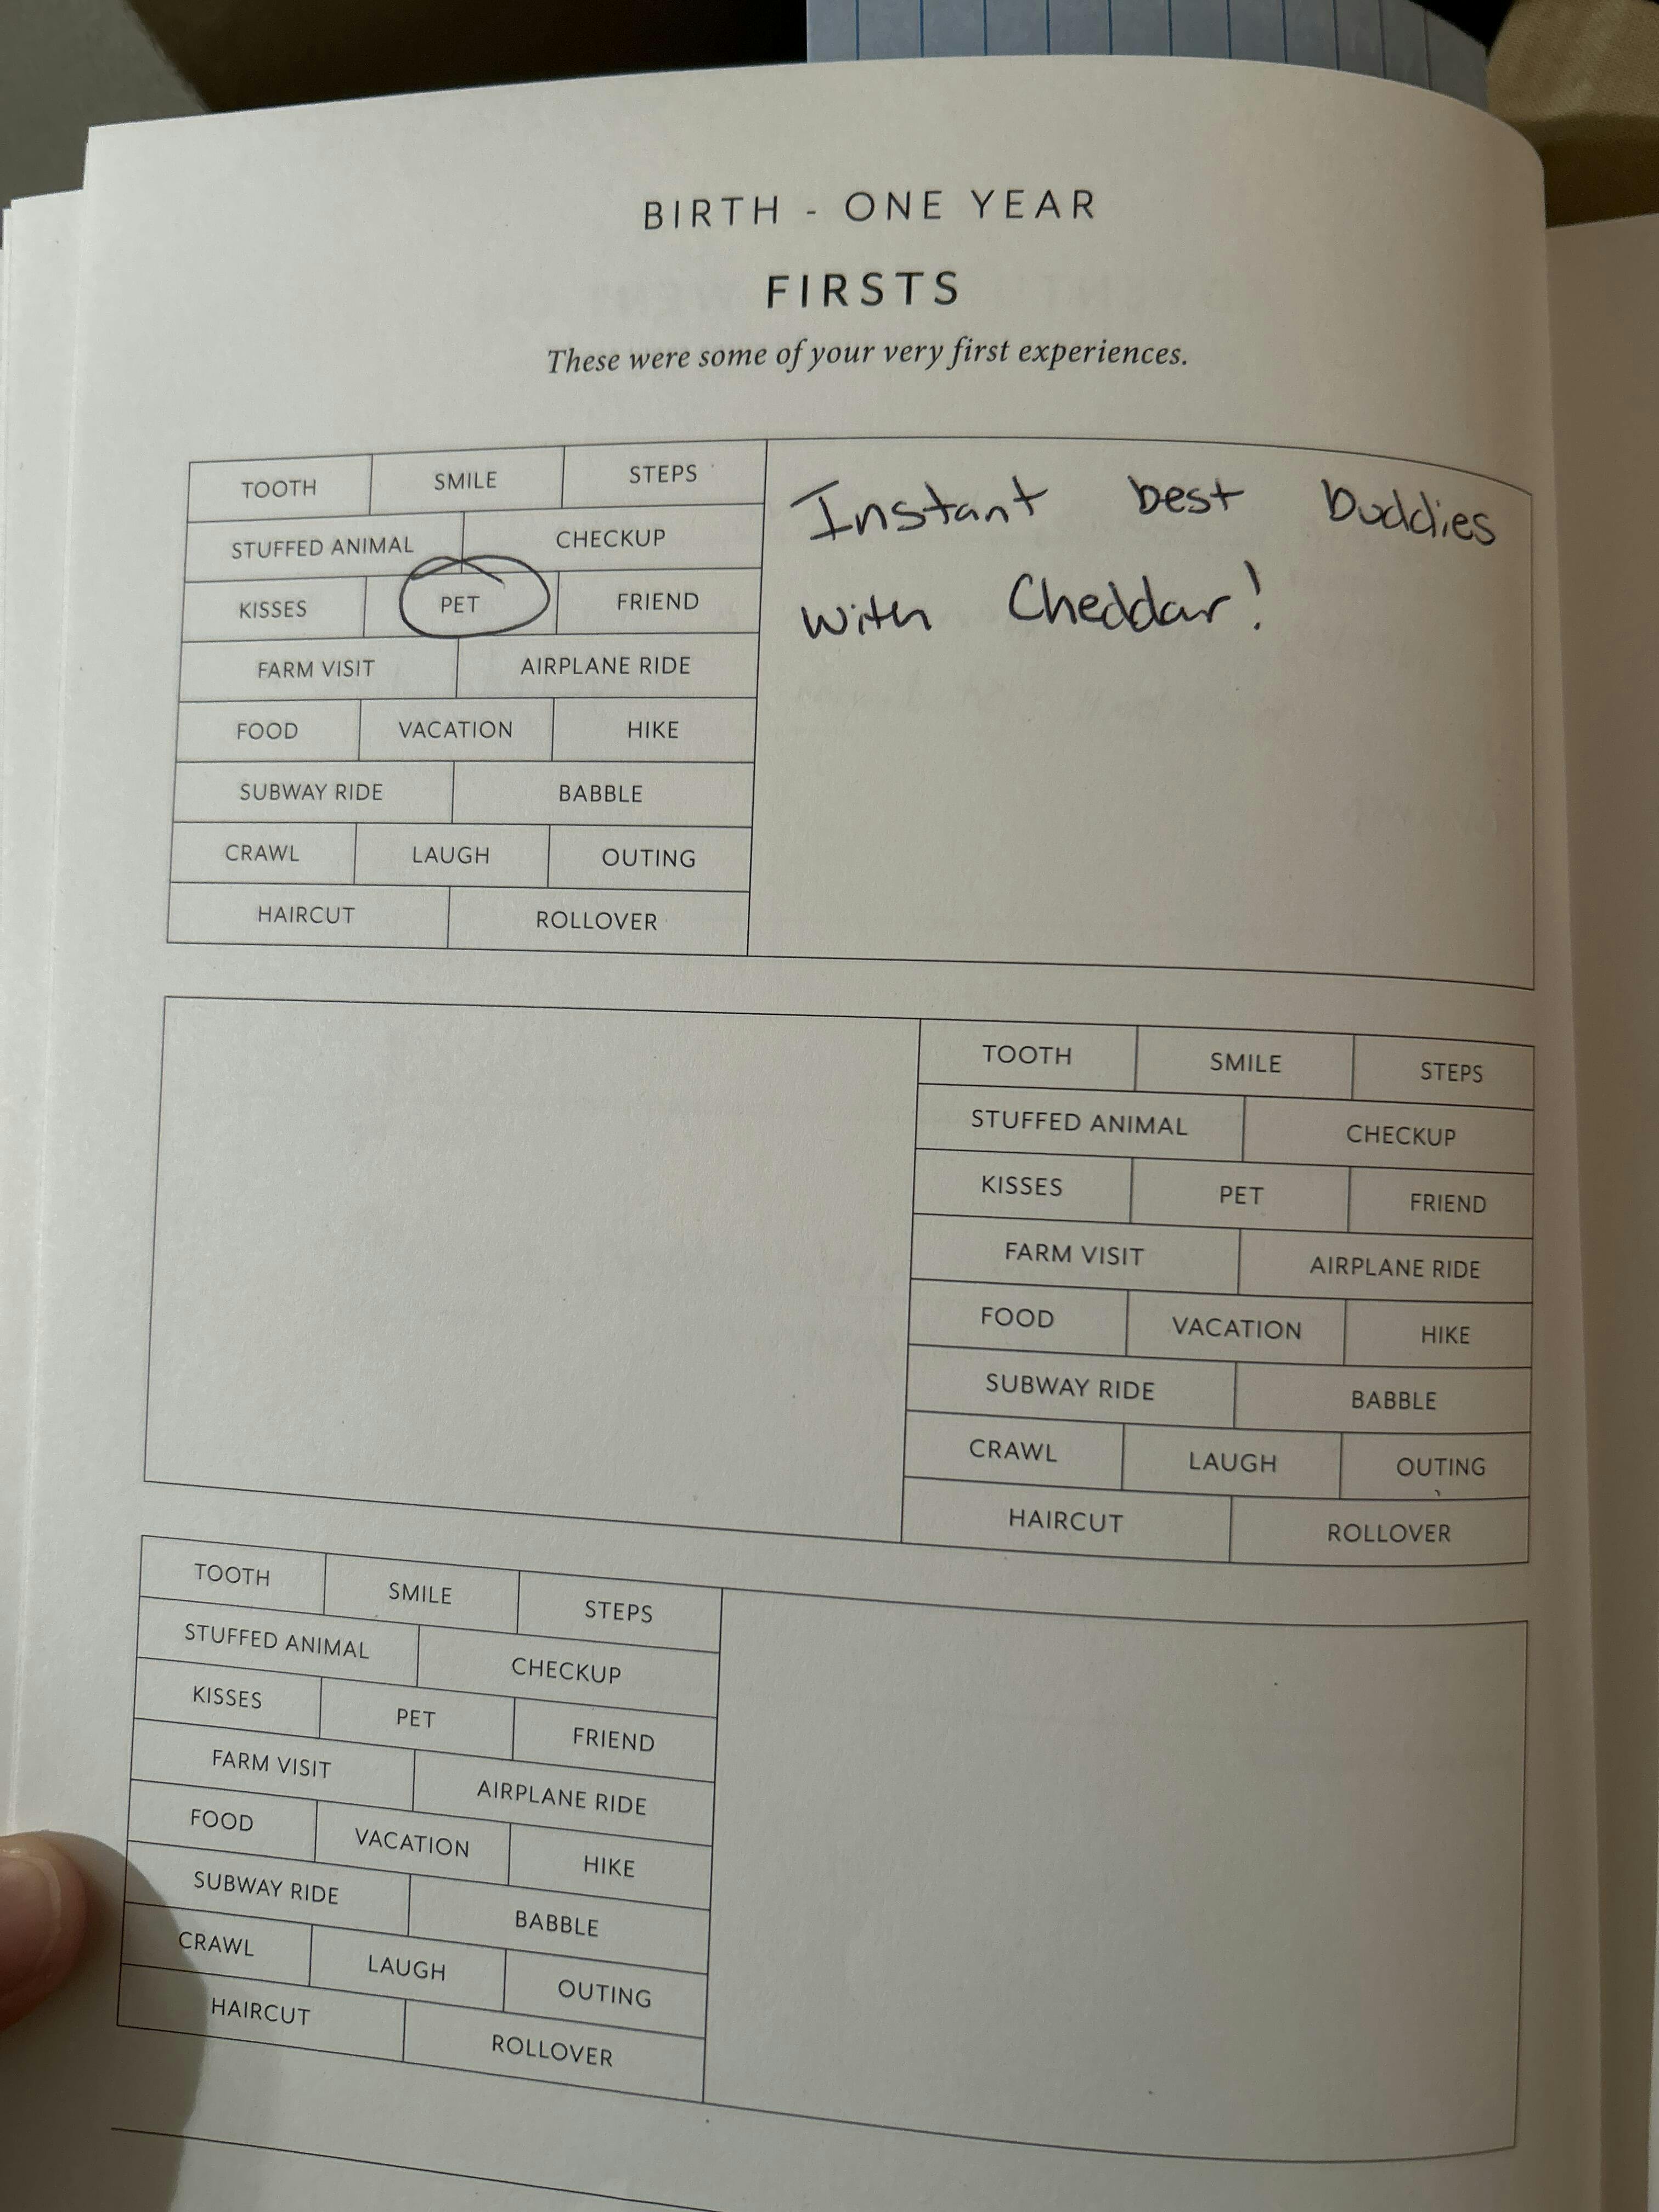 BIRTH - ONE YEAR
FIRSTS
These were some of your very first experiences.
TOOTH SMILE STEPS
STUFFED ANIMAL CHECKUP
KISSES PET FRIEND
FARM VISIT AIRPLANE RIDE
FOOD VACATION HIKE
SUBWAY RIDE BABBLE
CRAWL LAUGH OUTING
HAIRCUT ROLLOVER
Instant best buddies
with Cheddar!
TOOTH SMILE STEPS
STUFFED ANIMAL CHECKUP
KISSES PET FRIEND
FARM VISIT AIRPLANE RIDE
FOOD VACATION HIKE
SUBWAY RIDE BABBLE
CRAWL LAUGH OUTING
HAIRCUT ROLLOVER
TOOTH SMILE STEPS
STUFFED ANIMAL CHECKUP
KISSES PET FRIEND
FARM VISIT AIRPLANE RIDE
FOOD VACATION HIKE
SUBWAY RIDE BABBLE
CRAWL LAUGH OUTING
HAIRCUT ROLLOVER